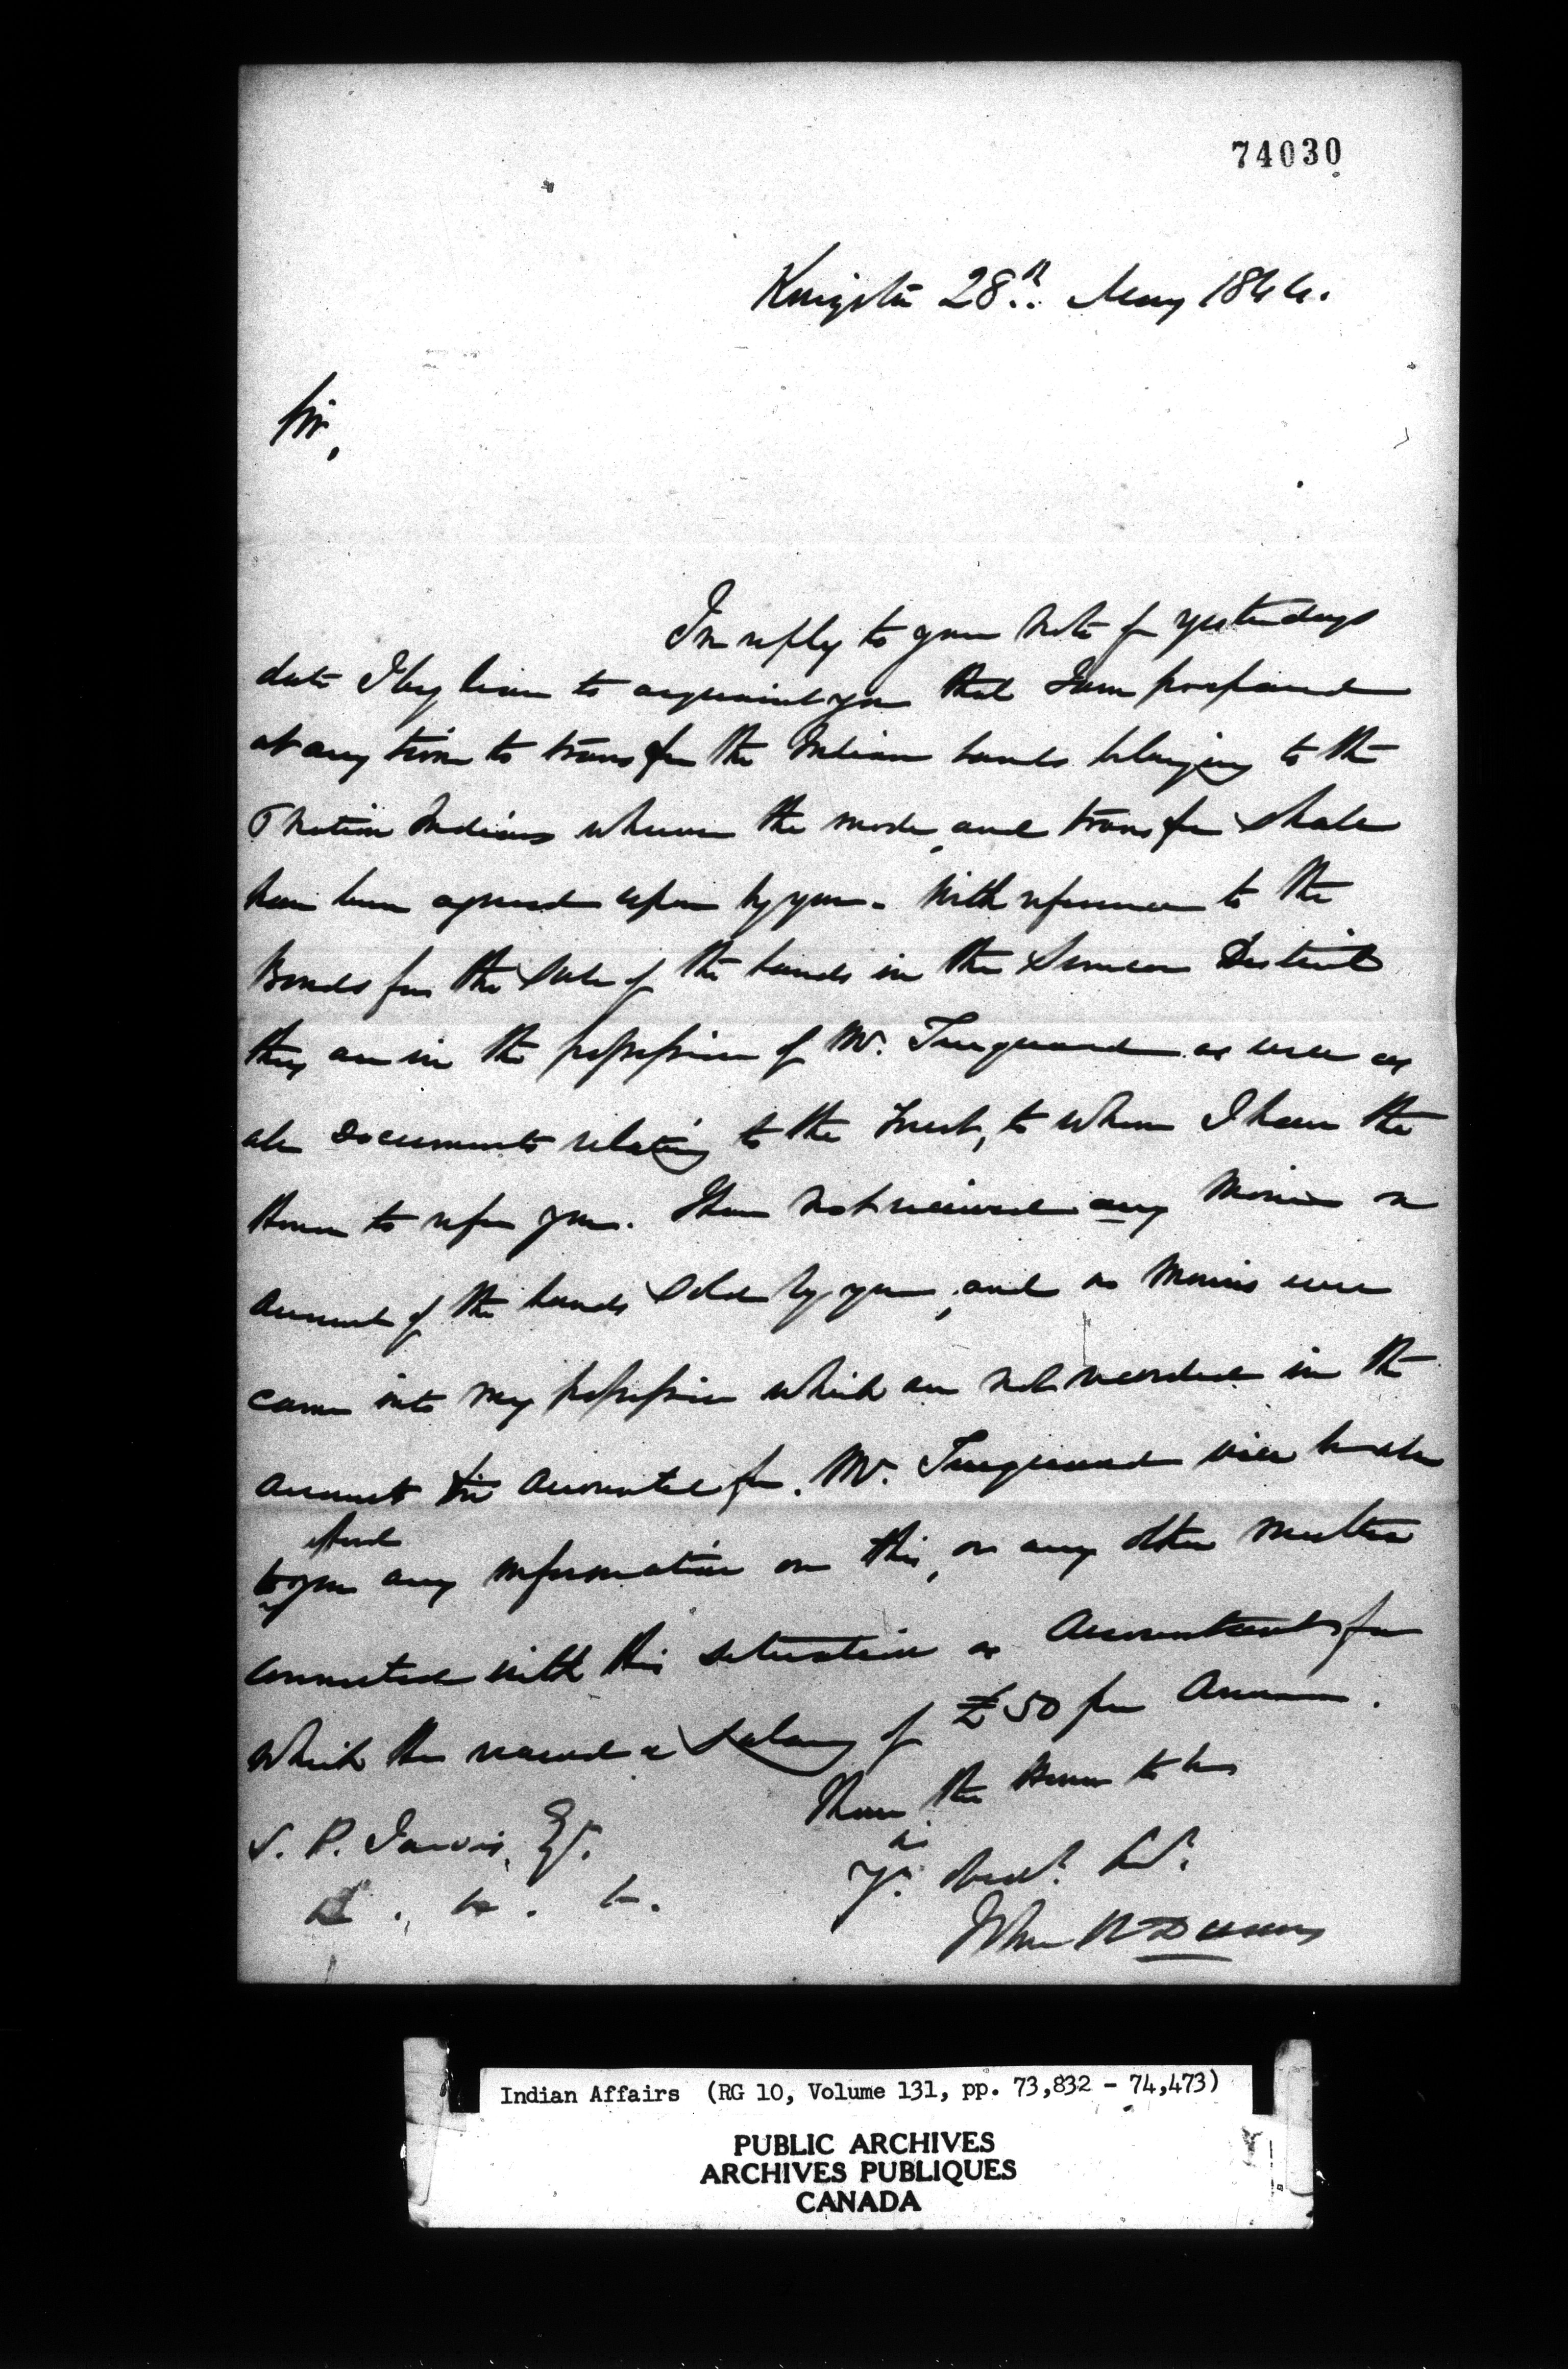 74030
Kingston 28th May 1844.
Sir,
In reply to your note of yesterdays
date I beg leave to acquaint you that I am prepared
at any time to transfer the Indian Lands belonging to the
6 Nation Indians whenever the mode, and transfer shall
have been agreed upon by you. With reference to the
Bonds for the Sale of the Lands in the Simcoe District
they are in the possession of Mr. Turquand as well as
all Documents relating to the Trust, to whom I have the
Honor to refer you. I have not received any Monies on
Account of the Lands Sold by you, and no Monies ever
came into my possession which are not recorded in the
Accounts accounted for. Mr. Turquand will be able
afford
to you any information on this, or any other matter
connected with this situation as Accountant for
which he received a Salary of £50 per Annum.
I have the Honor to be
Sir
Yr. Obedt. Sert.
John H Dunn
S. P. Jarvis, Esq.
&. &. &.
Indian Affairs (RG 10, Volume 131, pp. 73,832 - 74,473)
PUBLIC ARCHIVES
ARCHIVES PUBLIQUES
CANADA